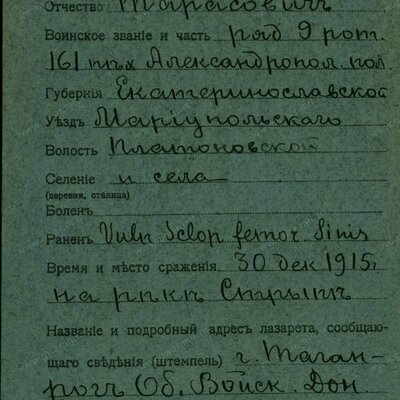 Отчество Тарасовичъ
Воинское званіе и часть ряд 9 рот.
161 пѣх Александропол. пол
Губернія Екатеринославской
Уѣздъ Маріупольскаго
Волость Платоновской
Селеніе и села
(деревня, станица)
Боленъ
Раненъ Vuln Sclop femor Sinis
Время и мѣсто сраженія 30 дек 1915г
на рѣкѣ Стрыпѣ
Названіе и подробный адресъ лазарета, сообщаю-
щаго свѣдѣнія (штемпель) г. Таган-
рогъ Об. Войск. Дон.